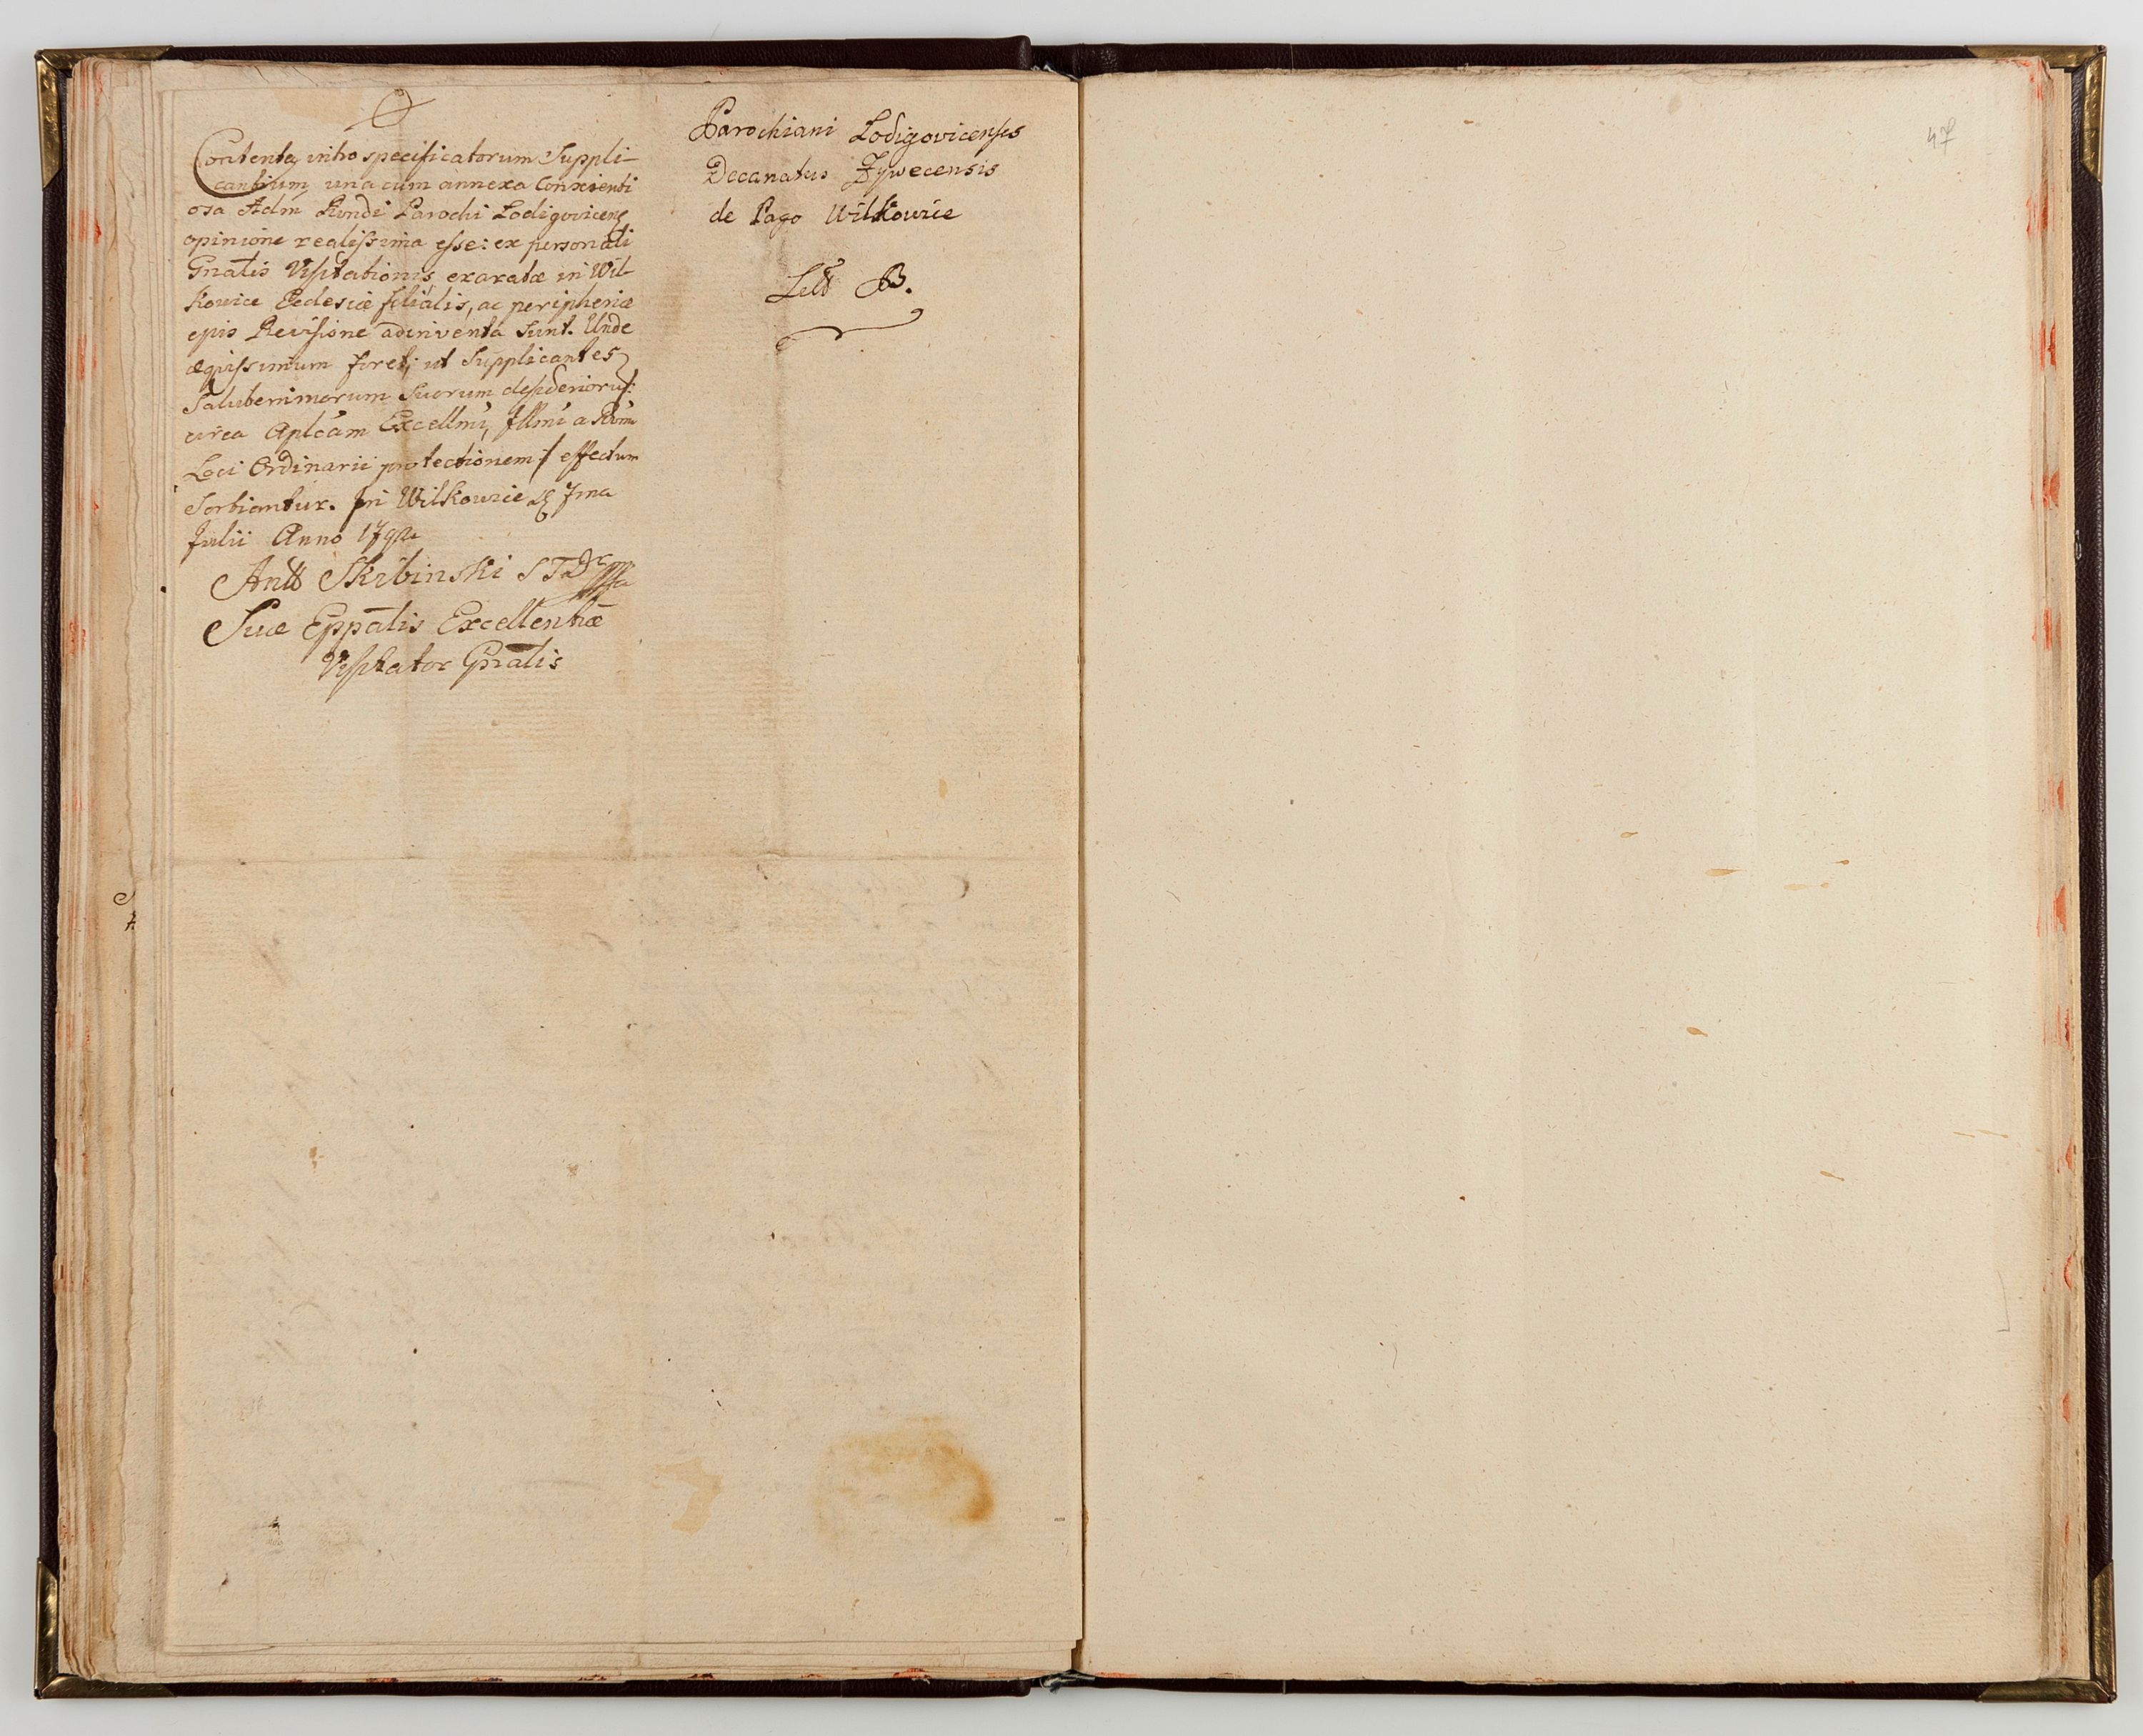 Contenta intro specificatorum Suppli-
cantium, una cum annexa Conscienti
osa Adm Rondi Parochi Lodigovicens
opinione realissima esse: ex personali
Gnalis Visitationis exaratæ in Wil-
kowice Ecclesiæ filialis, ac peripheriæ
ejus Revisione adinventa sunt. Unde
æquissimum foret, ut Supplicantes
Saluberrimorum Suorum desideriorum
circa Aplcam Excellmi, Illmi a Rmi
Loci Ordinarii protectionem effectum
Sortiantur. In Wilkowice 7ma
Julii Anno 1792
Antt Skrbinski S T Dr
Suæ Eppalis Excellentiæ
Visitator Gnalis
Parochiani Lodigovicenses
Decanatus Zywecensis
de Pago Wilkowice
Litt B.
47